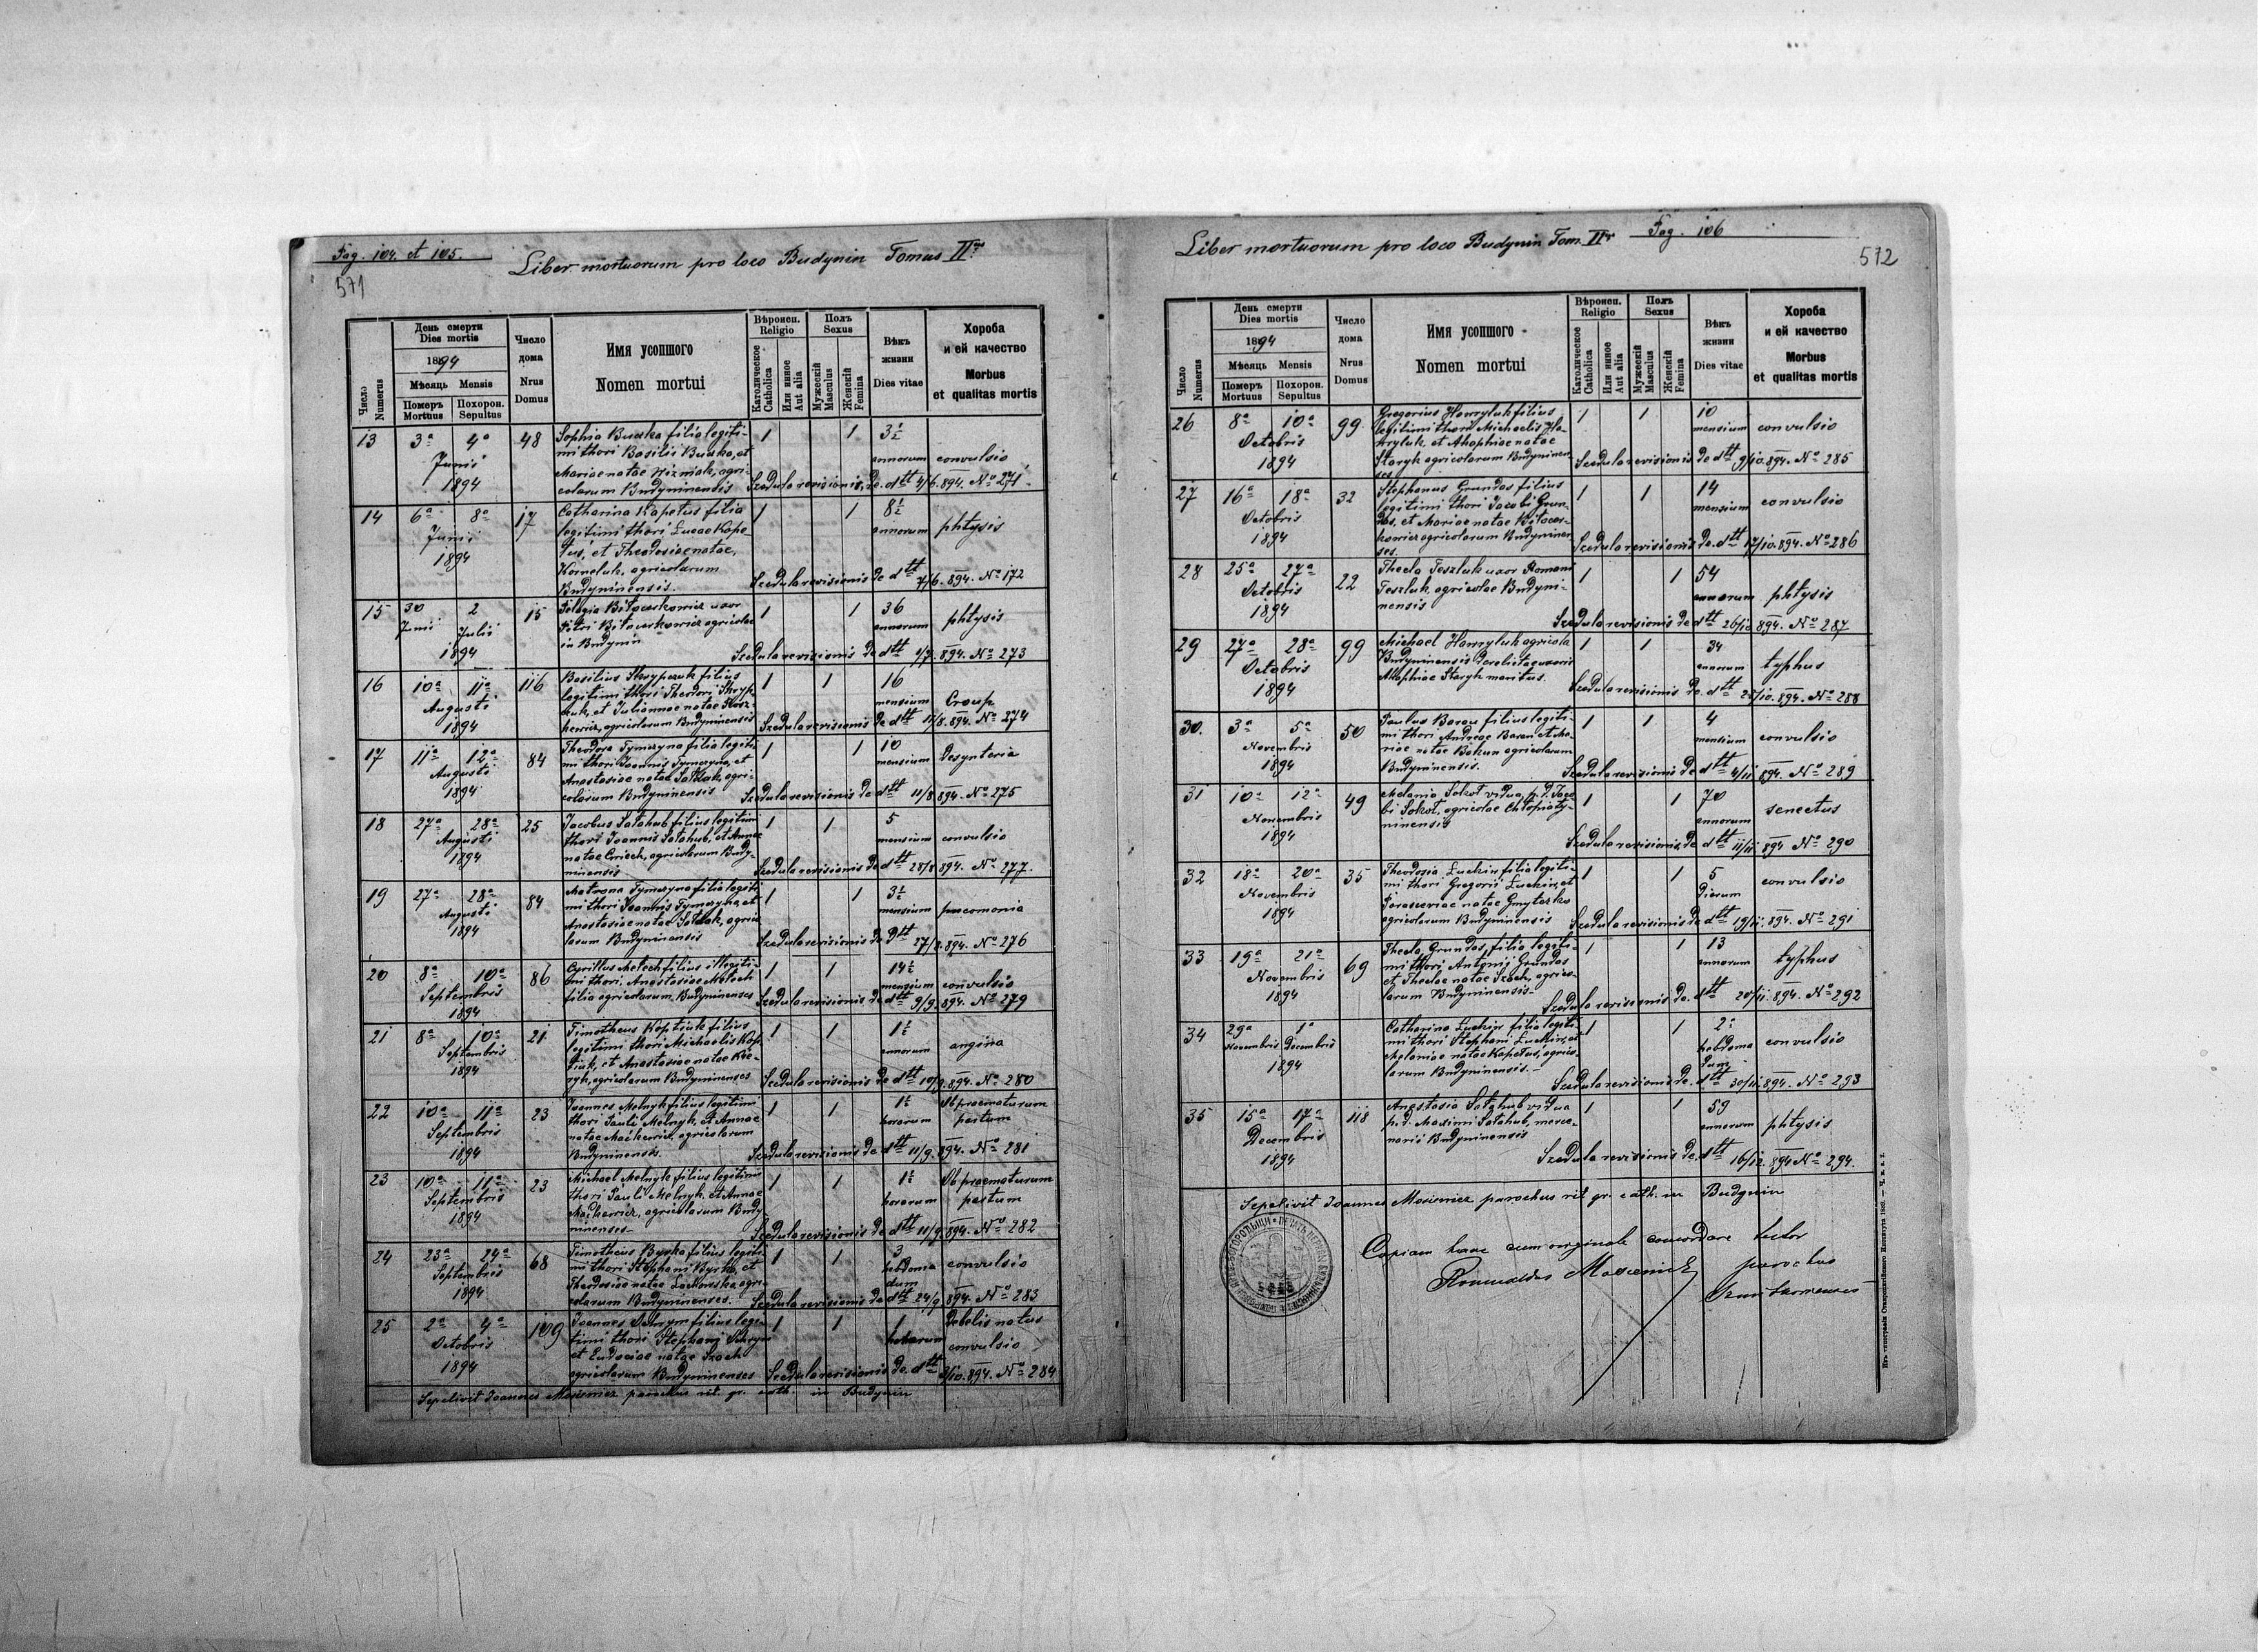 Pag. 104. et 105.
571
Liber mortuorum pro loco Budynin Tomus IIus
Число
Numerus
День смерти
Dies mortis
1894
Мѣсяць Mensis
Померъ
Mortuus
Похорон.
Sepultus
Число
дома
Nrus
Domus
Имя усопшого
Nomen mortui
Вѣроисп.
Religio
Католическое
Catholica
Или инное
Aut alia
Полъ
Sexus
Мужескій
Masculus
Женскій
Femina
Вѣкъ
жизни
Dies vitae
Хороба
и ей качество
Morbus
et qualitas mortis
13 3a 4a Junii 1894 48
Sophia Burka filia legiti-
mi thori Basilii Burka, et
Mariae natae Nizniak, agri-
colarum Budyninensis
1 1 3½ annorum convulsio
Szedula revisionis de dtt 4/6. 894. No 271
14 6a 8a Junii 1894 17
Catharina Kapetus filia
legitimi thori Lucae Kape-
tus, et Theodosiae natae,
Korneluk, agricolarum
Budyninensis.
1 1 8½ annorum phtysis
Szedula revisionis de dtt 7/6. 894. No 172
15 30 Junii 2 Julii 1894 15
Pelagia Bitouskowicz uxor
Petri Bitouskowicz agricolae
in Budynin
1 1 36 annorum phtysis
Szedula revisionis de dtt 1/7. 894. No 273
16 10a 11a Augusti 1894 116
Basilius Skrypczuk filius
legitimi thori Theodori Skryp-
czuk, et Juliannae natae
agricolarum Budyninensis
1 1 16 mensium Croup
Szedula revisionis de dtt 11/8. 894. No 274
17 11a 12a Augusti 1894 84
Theodora Tymczyna filia legiti-
mi thori Joannis Tymczyna, et
Anastasiae natae agri-
colarum Budyninensis
1 1 10 mensium Desynteria
Szedula revisionis de dtt 11/8 894. No 275
18 27a 28a Augusti 1894 25
Jacobus Satahub filius legitimi
thori Joannis Satahub, et Annae
natae agricolarum Budy-
ninensis
1 1 5 mensium convulsio
Szedula revisionis de dtt 28/8 894. No 277.
19 27a 28a Augusti 1894 84
Matrona Tymczyna filia legiti-
mi thori Joannis Tymczyna, et
Anastasiae natae agrico-
larum Budyninensis
1 1 3½ mensium pneomonia
Szedula revisionis de dtt 27/8. 894. No 276
20 8a 10a Septembris 1894 86
Cyrillus Melech filius illegiti-
mi thori. Anastasiae Melech
filia agricolarum, Budyninenses
1 1 14½ mensium convulsio
Szedula revisionis de dtt 9/9. 894. No 279
21 8a 10a Septembris 1894 21
Timotheus Koptiuk filius
legitimi thori Michaelis Kop-
tiuk, et Anastasiae natae
agricolarum Budyninenses
1 1 1½ annorum angina
Szedula revisionis de dtt 10/9. 894. No 280
22 10a 11a Septembris 1894 23
Joannes Melnyk filius legitimi
thori Pauli Melnyk, et Annae
natae Mackewicz, agricolarum
Budyninensis.
1 1 1½ horarum Ob praematurum
partum
Szedula revisionis de dtt 11/9. 894. No 281
23 10a 11a Septembris 1894 23
Michael Melnyk filius legitimi
thori Pauli Melnyk, et Annae
Mackewicz, agricolarum Budy-
ninenses
1 1 1½ horarum Ob praematurum
partum
Szedula revisionis de dtt 11/9. 894. No 282
24 23a 24a Septembris 1894 68
Timotheus Byrka filius legiti-
mi thori Stephani Byrka, et
Theodosiae natae Lachowska agri-
colarum Budyninenses.
1 1 3 hebdoma
dum convulsio
Szedula revisionis de dtt 24/9. 894. No 283
25 2a 4a Octobris 1894 109
Joannes filius legi-
timi thori Stephani
et Eudociae natae Szach
agricolarum Budyninenses
1 1 1 horarum Debelis natus
convulsio
Szedula revisionis de dtt 3/10. 894. No 284
Sepelivit Joannes Mosiewicz parochus rit. gr. cath. in Budynin
Pag. 106
572
Liber mortuorum pro loco Budynin Tom. IIus
Число
Numerus
День смерти
Dies mortis
1894
Мѣсяць Mensis
Померъ
Mortuus
Похорон.
Sepultus
Число
дома
Nrus
Domus
Имя усопшого
Nomen mortui
Вѣроисп.
Religio
Католическое
Catholica
Или инное
Aut alia
Полъ
Sexus
Мужескій
Masculus
Женскій
Femina
Вѣкъ
жизни
Dies vitae
Хороба
и ей качество
Morbus
et qualitas mortis
26 8a 10a Octobris 1894 99
Gregorius Hawryluk filius
legitimi thori Michaelis Ha-
wryluk et Ahaphiae natae
Staryk agricolarum Budyninen-
ses
1 1 10 mensium convulsio
Szedula revisionis de dtt 9/10. 894. No 285
27 16a 18a Octobris 1894 32
Stephanus Grundas filius
legitimi thori Jacobi Grun-
das, et Mariae natae Bitous-
kowicz agricolarum Budyninen-
ses.
1 1 14 mensium convulsio
Szedula revisionis de dtt 17/10. 894. No 286
28 25a 27a Octobris 1894 22
Thecla Teszluk uxor Romani
Teszluk, agricolae Budyni-
nensis
1 1 54 annorum phtysis
Szedula revisionis de dtt 26/10 894. No 287
29 27a 28a Octobris 1894 99
Michael Hawryluk agricola
Budyninensis derelictae uxoris
Ahaphiae Staryk maritus.
1 1 34 annorum typhus
Szedula revisionis de dtt 28/10. 894. No 288
30. 3a 5a Novembris 1894 50
Paulus Baran filius legiti-
mi thori Andreae Baran et Ma-
riae natae Bakun agricolarum
Budyninensis.
1 1 4 mensium convulsio
Szedula revisionis de dtt 4/11 894. No 289
31 10a 12a Novembris 1894 49
Melania Sokoł vidua, p. d. Jaco-
bi Sokoł, agricolae Chłopiaty-
ninensis
1 1 70 annorum senectus
Szedula revisionis, de dtt 11/11 894 No 290
32 18a 20a Novembris 1894 35
Theodosia Luckiw filia legiti-
mi thori Gregorii Luckiw, et
Parasceviae natae Gmyterko
agricolarum Budyninensis
1 1 5 Dierum convulsio
Szedula revisionis de dtt 19/11. 894. No 291
33 19a 21a Novembris 1894 69
Thecla Grundas, filia legiti-
mi thori Antonii Grundas
et Theclae natae Szach, agrico-
larum Budyninensis
1 1 13 annorum typhus
Szedula revisionis de dtt 20/11. 894. No 292
34 29a Novembris 1a Decembris 1894
Catharina Luckiw filia legiti-
mi thori Stephani Luckiw, et
Melaniae natae Kapetus, agrico-
larum Budyninensis.
1 1 2 hebdoma
dum convulsio
Szedula revisionis de dtt 30/11. 894. No 293
35 15a 17a Decembris 1894 118
Anastasia Satahub vidua
p. d. Maximi Satahub, merce-
narii Budyninensis
1 1 59 annorum phtysis
Szedula revisionis de dtt 16/12. 894 No 294.
Sepelivit Joannes Mosiewicz parochus rit. gr. cath. in Budynin
Copiam hanc cum originale concordare testor
Romualdus parochus